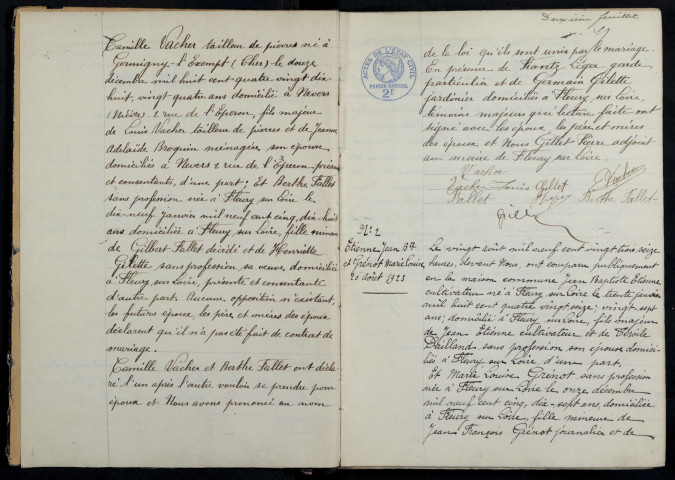 Camille Vacher tailleur de pierres né à
Germigny-l'Exempt (Cher) le douze
décembre mil huit cent quatre vingt dix
huit, vingt-quatre ans domicilié à Nevers
(Nièvre) 2 rue de l'Eperon, fils majeur
de Louis Vacher tailleur de pierres et de Jeanne
Adelaïde Broquin ménagère son épouse
domiciliés à Nevers 2 rue de l'Eperon présents
et consentants, d'une part; Et Berthe Fallet
sans profession née à Fleury sur Loire le
dix neuf janvier mil neuf cent cinq, dix huit
ans domiciliée à Fleury sur Loire, fille mineure
de Gilbert Fallet décédé et de Henriette
Gilette sans profession sa veuve, domiciliée
à Fleury sur Loire, présente et consentante
d'autre part. Aucune opposition n'existant,
les futurs époux, les père et mères des époux
déclarent qu'il n'a pas été fait de contrat de
mariage.
Camille Vacher et Berthe Fallet ont décla-
ré l'un après l'autre vouloir se prendre pour
époux et Nous avons prononcé au nom
Deuxième feuillet
ACTES DE L'ÉTAT CIVIL
PAPIER SPÉCIAL
2F
de la loi qu'ils sont unis par le mariage.
En présence de Frantz Léger garde
particulier et de Germain Gilette
jardinier domiciliés à Fleury sur Loire,
témoins majeurs qui lecture faite ont
signé avec les époux, les père et mères
des époux et Nous Gillet Pierre adjoint
au maire de Fleury sur Loire.
Vacher Louis Gillet
Fallet Berthe Fallet
Gillet
N° 2
Etienne Jean Bte
et Grénot Marie Louise
20 août 1923
Le vingt août mil neuf cent vingt trois, seize
heures, devant Nous, ont comparu publiquement
en la maison commune Jean Baptiste Etienne
cultivateur né à Fleury sur Loire le trente janvier
mil huit cent quatre vingt seize, vingt sept
ans, domicilié à Fleury sur Loire, fils majeur
de Jean Etienne cultivateur et de
sans profession, son épouse domici-
liés à Fleury sur Loire d'une part,
Et Marie Louise Grénot sans profession
née à Fleury sur Loire le onze décembre
mil neuf cent cinq, dix-sept ans, domiciliée
à Fleury sur Loire, fille mineure de
Jean François Grénot journalier et de